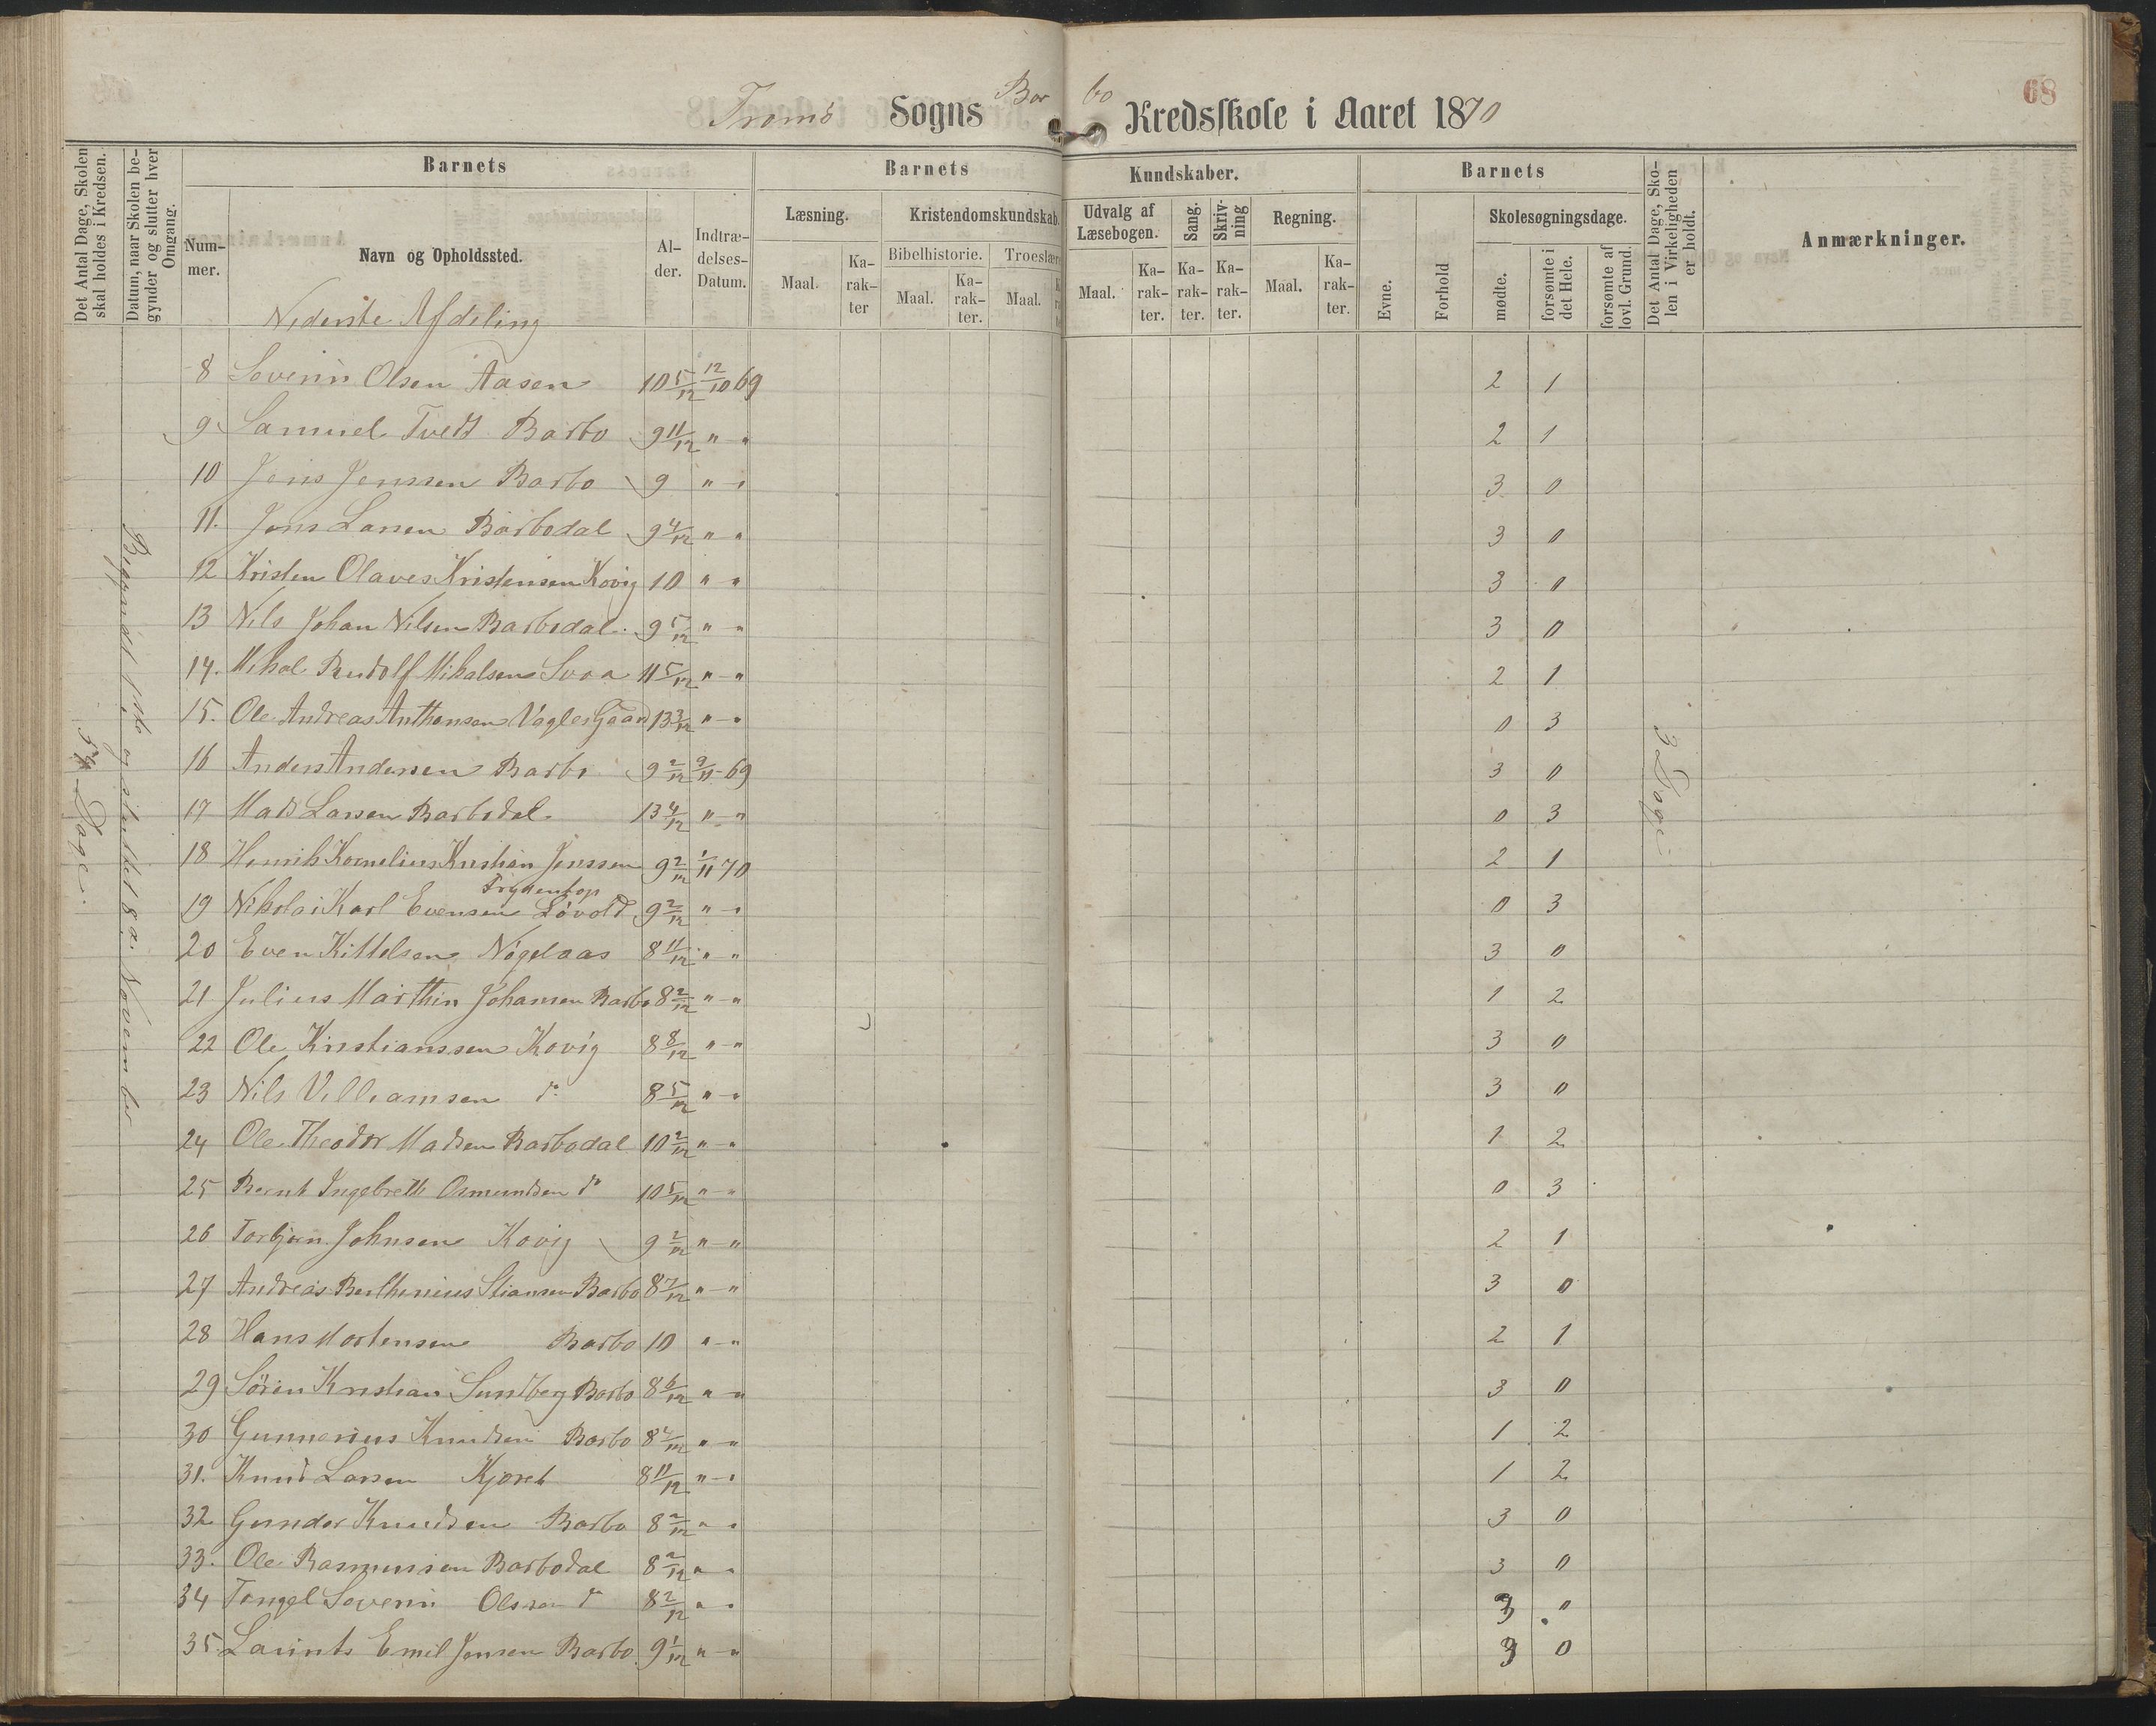 68
Tromö Sogns Barbo Kredsskole i Aaret 1870
Det Antal Dage, Skolen skal holdes i Kredsen.
Datum, naar Skolen begynder og slutter hver Omgang.
Barnets
Barnets
Kundskaber.
Barnets
Nummer.
Navn og Opholdssted.
Alder.
Indtrædelses-Datum.
Læsning.
Kristendomskundskab.
Udvalg af Læsebogen.
Sang.
Skrivning
Regning.
Skolesøgningsdage.
Det Antal Dage, Skolen i Virkeligheden er holdt.
Anmærkninger.
Bibelhistorie. Troeslære
Maal. Karakter Maal. Karakter. Maal.
Maal. Karakter. Karakter. Karakter. Maal. Karakter.
Evne. Forhold mødte. forsømte i det Hele. forsømte af lovl. Grund.
Nederste Afdeling
8 Severin Olsen Aasen 10 5/12 12/10 69 2 1
9 Samuel Tvedt Barbo 9 11/12 " " 2 1
10 Jens Jenssen Barbo 9 " " 3 0
11. Jens Larsen Barbodal 9 4/12 " " 3 0
12 Kristen Olaves Kristensen Kovig 10 " " 3 0
13 Nils Johan Nilsen Barbodal 9 5/12 " " 3 0
14. Mikal Rudolf Mikalsen Svoa 11 5/12 " " 2 1
15. Ole Andreas Anthonsen 13 3/12 " " 0 3
16 Anders Andersen Barbo 9 2/12 9/11 69 3 0
17 Mads Larsen Barbodal 13 4/12 " " 0 3
18 Henrik Kornelius Kristian Jenssen 9 2/12 1/11 70 2 1
19 Nikolai Karl Evensen Løvold 9 2/12 " " 0 3
20 Even Kittelsen 8 11/12 " " 3 0
21 Julius Marthin Johansen Barbo 8 2/12 " " 1 2
22 Ole Kristianssen Kovig 8 8/12 " " 3 0
23 Nils Villiamsen do 8 5/12 " " 3 0
24 Ole Theodor Madsen Barbodal 10 2/12 " " 1 2
25 Bernt Ingebreth Osmundsen do 10 5/12 " " 0 3
26 Torbjørn Johnsen Kovig 9 2/12 " " 2 1
27 Andreas Berthinius Stiansen Barbo 8 7/12 " " 3 0
28 Hans Mortensen Barbo 10 " " 2 1
29 Søren Kristian Sundberg Barbo 8 6/12 " " 3 0
30 Gunnerius Knudsen Barbo 8 4/12 " " 1 2
31. Knud Larsen 8 11/12 " " 1 2
32 Gunder Knudsen Barbo 8 2/12 " " 3 0
33. Ole Rasmussen Barbodal 8 2/12 " " 3 0
34 Tengel Severin Olssen do 8 2/12 " " 3 0
35 Laurits Emil Jensen Barbo 9 1/12 " " 3 0
Dage.
og sluttet 8 a. November
3 Dage